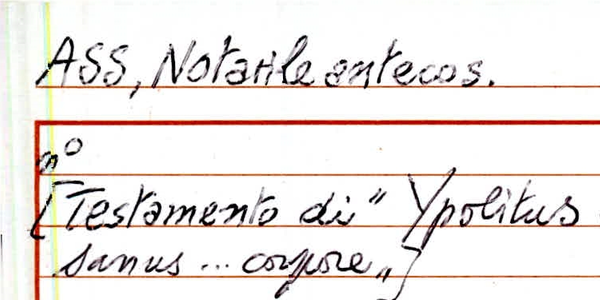 ASS, Notarile antecos.
n°
[Testamento di "Ypolitus
sanus ... corpore"]